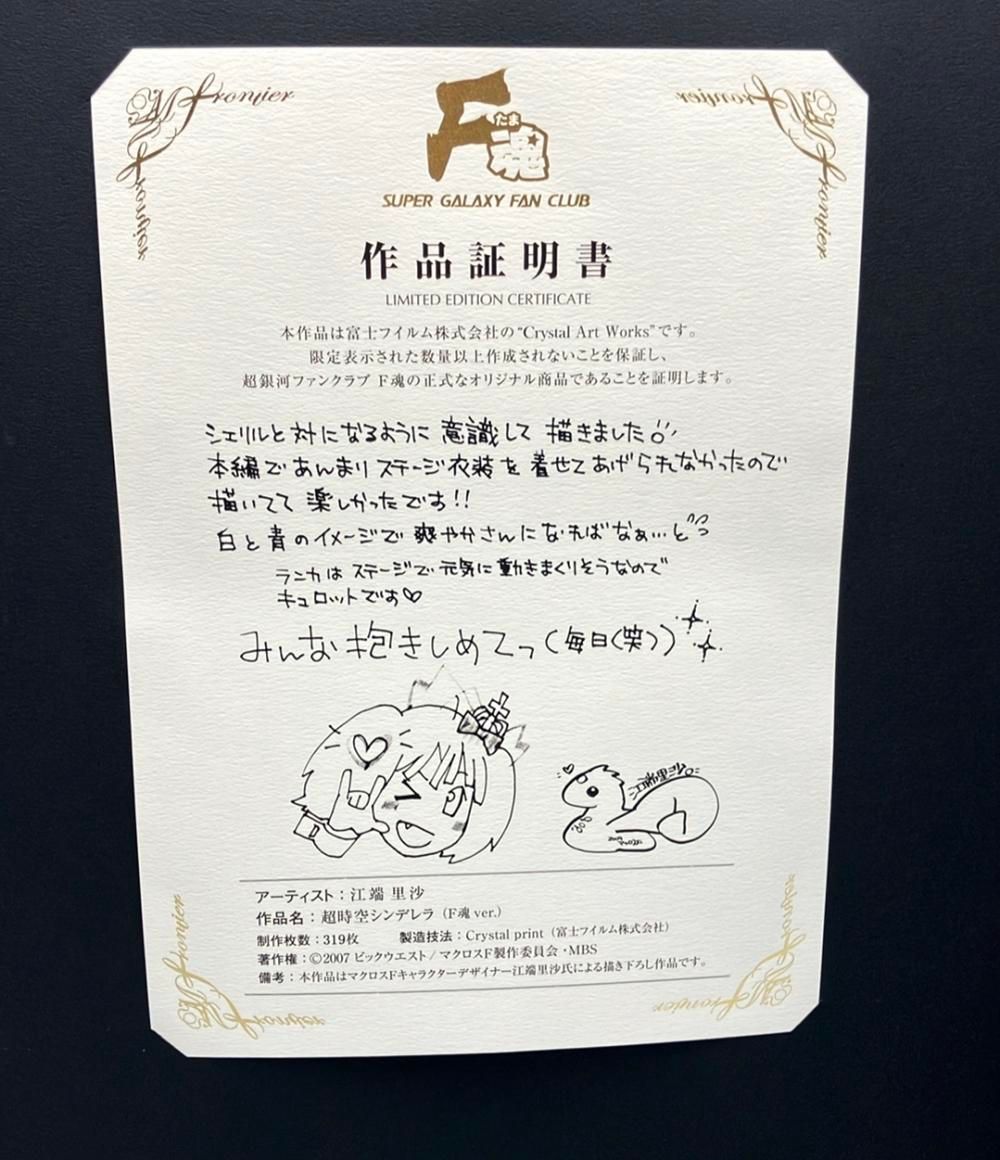 Frontier
Frontier
Frontier
Frontier
F
たま
魂
SUPER GALAXY FAN CLUB
作品証明書
LIMITED EDITION CERTIFICATE
本作品は富士フイルム株式会社の"Crystal Art Works"です。
限定表示された数量以上作成されないことを保証し、
超銀河ファンクラブ F魂の正式なオリジナル商品であることを証明します。
シェリルと対になるように意識して描きました
本編であんまりステージ衣装を着せてあげられなかったので
描いてて楽しかったです!!
白と青のイメージで爽やかさんになればなぁ…と
ランカはステージで元気に動きまくりそうなので
キュロットです♡
みんな抱きしめてっ(毎日(笑))
江端里沙
アーティスト：江端 里沙
作品名：超時空シンデレラ（F魂 ver.）
制作枚数：319枚 製造技法：Crystal print（富士フイルム株式会社）
著作権：©2007 ビックウエスト/マクロスF製作委員会・MBS
備考：本作品はマクロスFキャラクターデザイナー江端里沙氏による描き下ろし作品です。
Frontier
Frontier
Frontier
Frontier